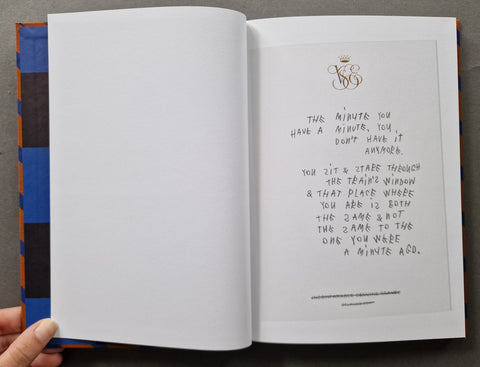 THE MINUTE YOU
HAVE A MINUTE, YOU
DON'T HAVE IT
ANYMORE.
YOU SIT & STARE THROUGH
THE TRAIN'S WINDOW
& THAT PLACE WHERE
YOU ARE IS BOTH
THE SAME & NOT
THE SAME TO THE
ONE YOU WERE
A MINUTE AGO.